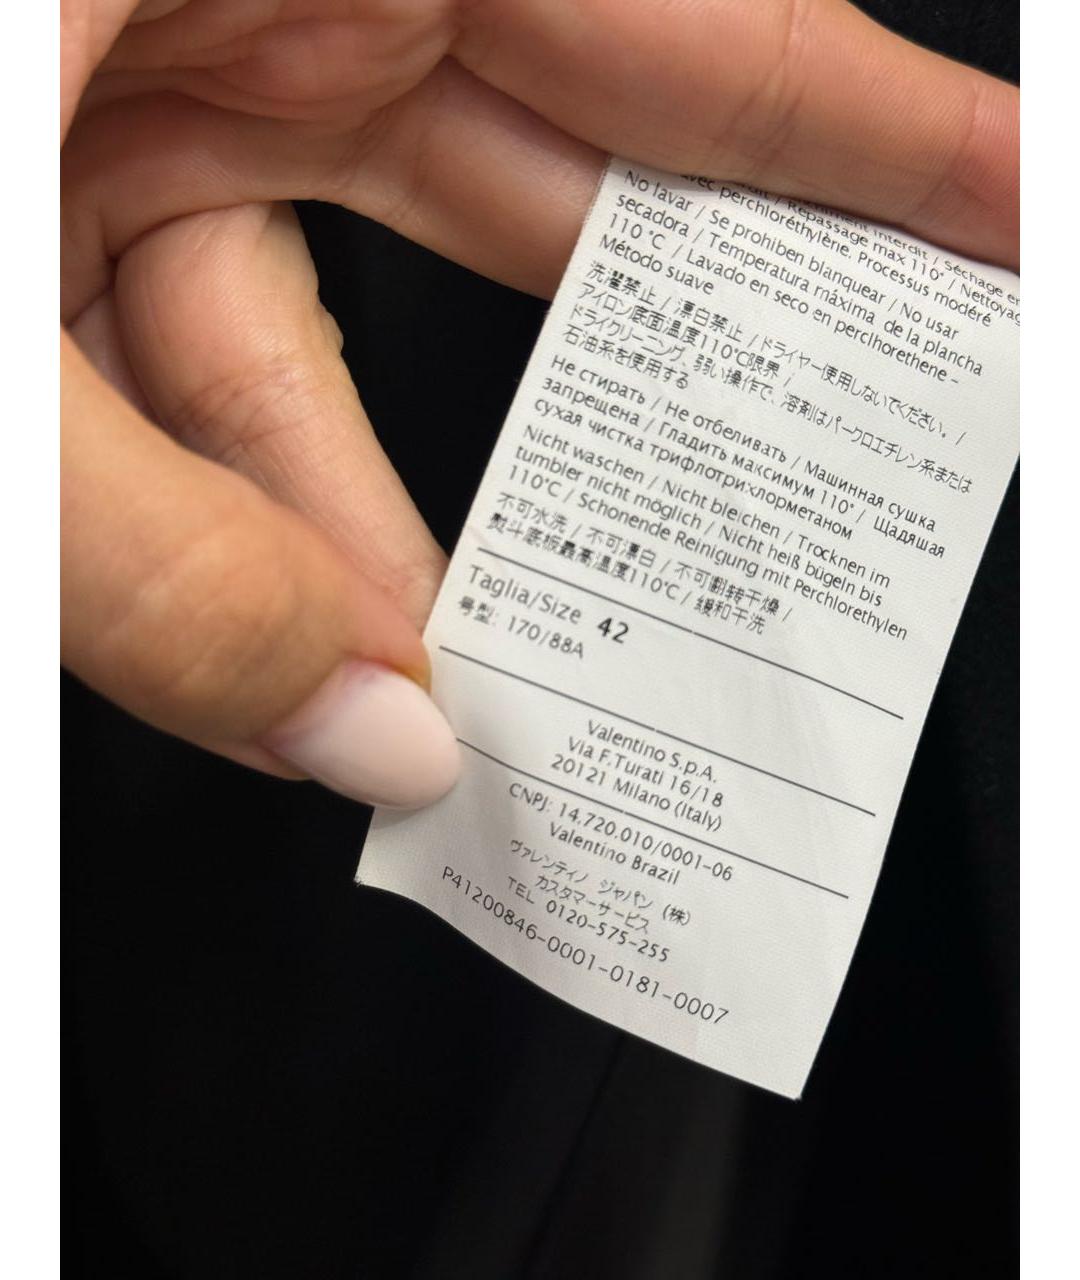 interdit / Séchage en
Repassage max 110° / Nettoyag
avec perchloréthylène. Processus modéré
No lavar / Se prohiben blanquear / No usar
secadora / Temperatura máxima de la plancha
110 °C / Lavado en seco en perclhorethene –
Método suave
洗濯禁止 / 漂白禁止 / ドライヤー使用しないでください。 /
アイロン底面温度110℃限界 /
ドライクリーニング、弱い操作で、溶剤はパークロエチレン系または
石油系を使用する
Не стирать / Не отбеливать / Машинная сушка
запрещена / Гладить максимум 110° / Щадяшая
сухая чистка трифлотрихлорметаном
Nicht waschen / Nicht bleichen / Trocknen im
tumbler nicht möglich / Nicht heiß bügeln bis
110°C / Schonende Reinigung mit Perchlorethylen
不可水洗 / 不可漂白 / 不可翻转干燥 /
熨斗底板最高温度110℃ / 缓和干洗
Taglia/Size 42
号型: 170/88A
Valentino S.p.A.
Via F.Turati 16/18
20121 Milano (Italy)
CNPJ: 14.720.010/0001-06
Valentino Brazil
ヴァレンティノ ジャパン (株)
カスタマーサービス
TEL 0120-575-255
P41200846-0001-0181-0007